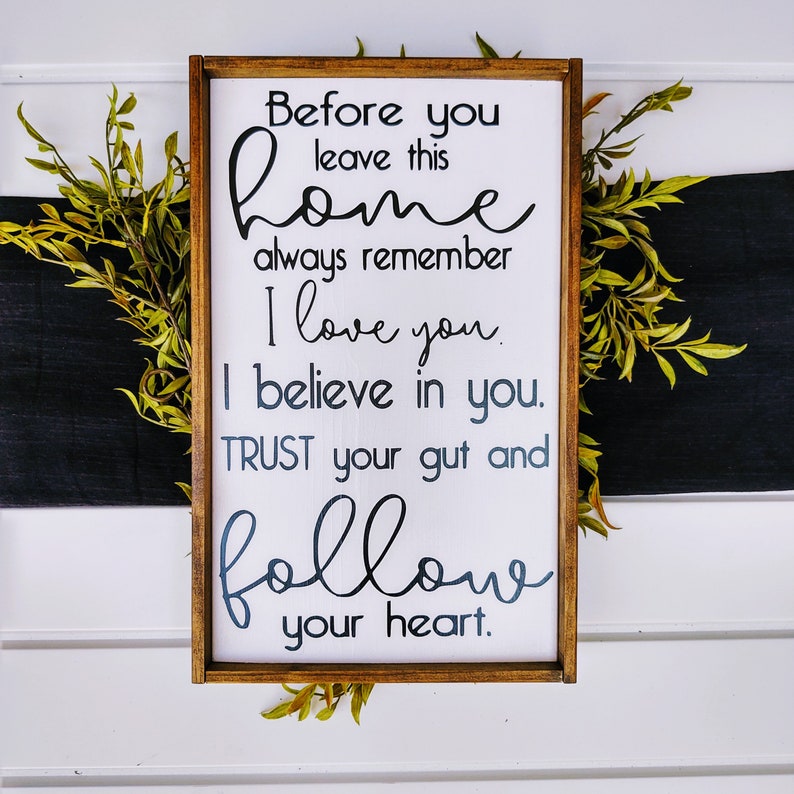 Before you
leave this
home
always remember
I love you.
I believe in you.
TRUST your gut and
follow
your heart.